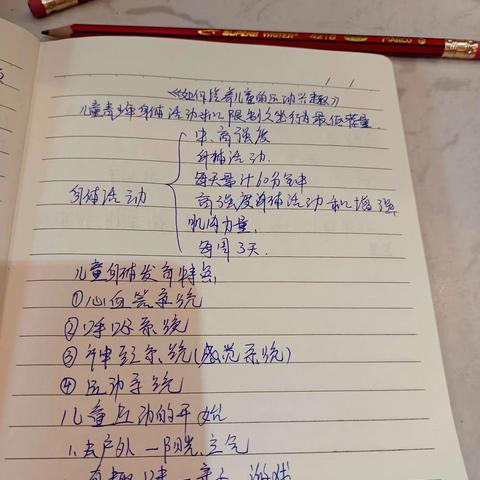 SUPERB WRITER 4218
MARCO
《如何培养儿童的运动兴趣》
儿童青少年身体活动和限制久坐行为最低要求量
中、高强度
身体活动.
每天累计60分钟
身体活动
高强度身体活动和增强
肌肉力量,
每周3天.
儿童身体发育特点
①心血管系统
②呼吸系统
③神经系统(感觉系统)
④运动系统
儿童运动的开始
1.去户外—阳光,空气
有趣